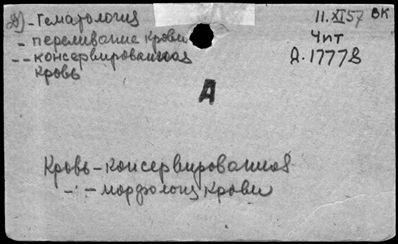 Д) - Гематология
11.XI57 ВК
- переливание крови
Чит
- - консервированная
Д.17778
кровь
А
Кровь - консервированная
- " - морфология крови